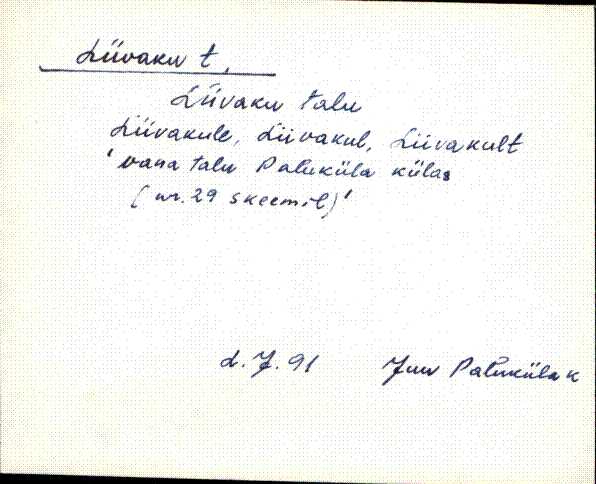 Liivaku t.
Liivaku talu
Liivakule, Liivakul, Liivakult
'vana talu Paluküla külas
(nr. 29 skeemil)'
L. J. 91 Juu Paluküla k